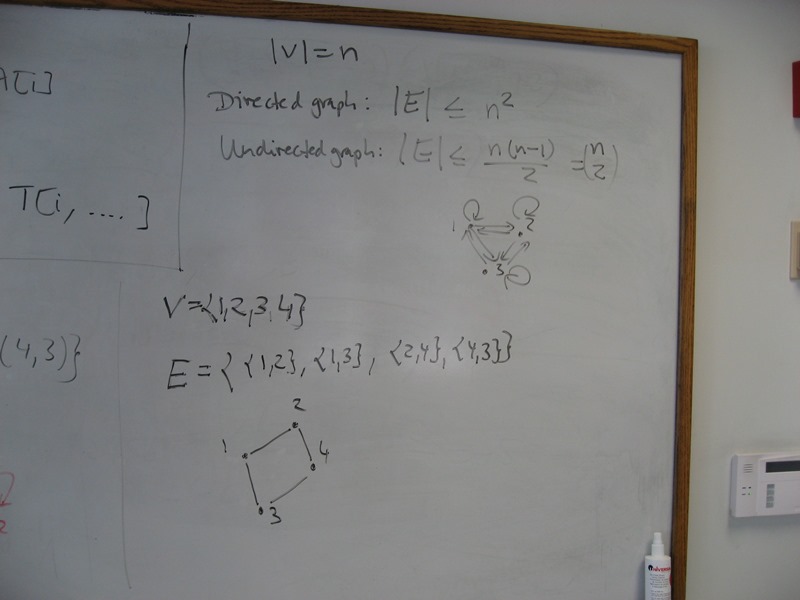 A[i]
T[i, ....]
(4,3)}
2
|V|=n
Directed graph: |E| ≤ n²
Undirected graph: |E| ≤ n(n-1)/2 = (n 2)
1 2
3
V={1,2,3,4}
E={ {1,2}, {1,3}, {2,4}, {4,3}}
2
1 4
3